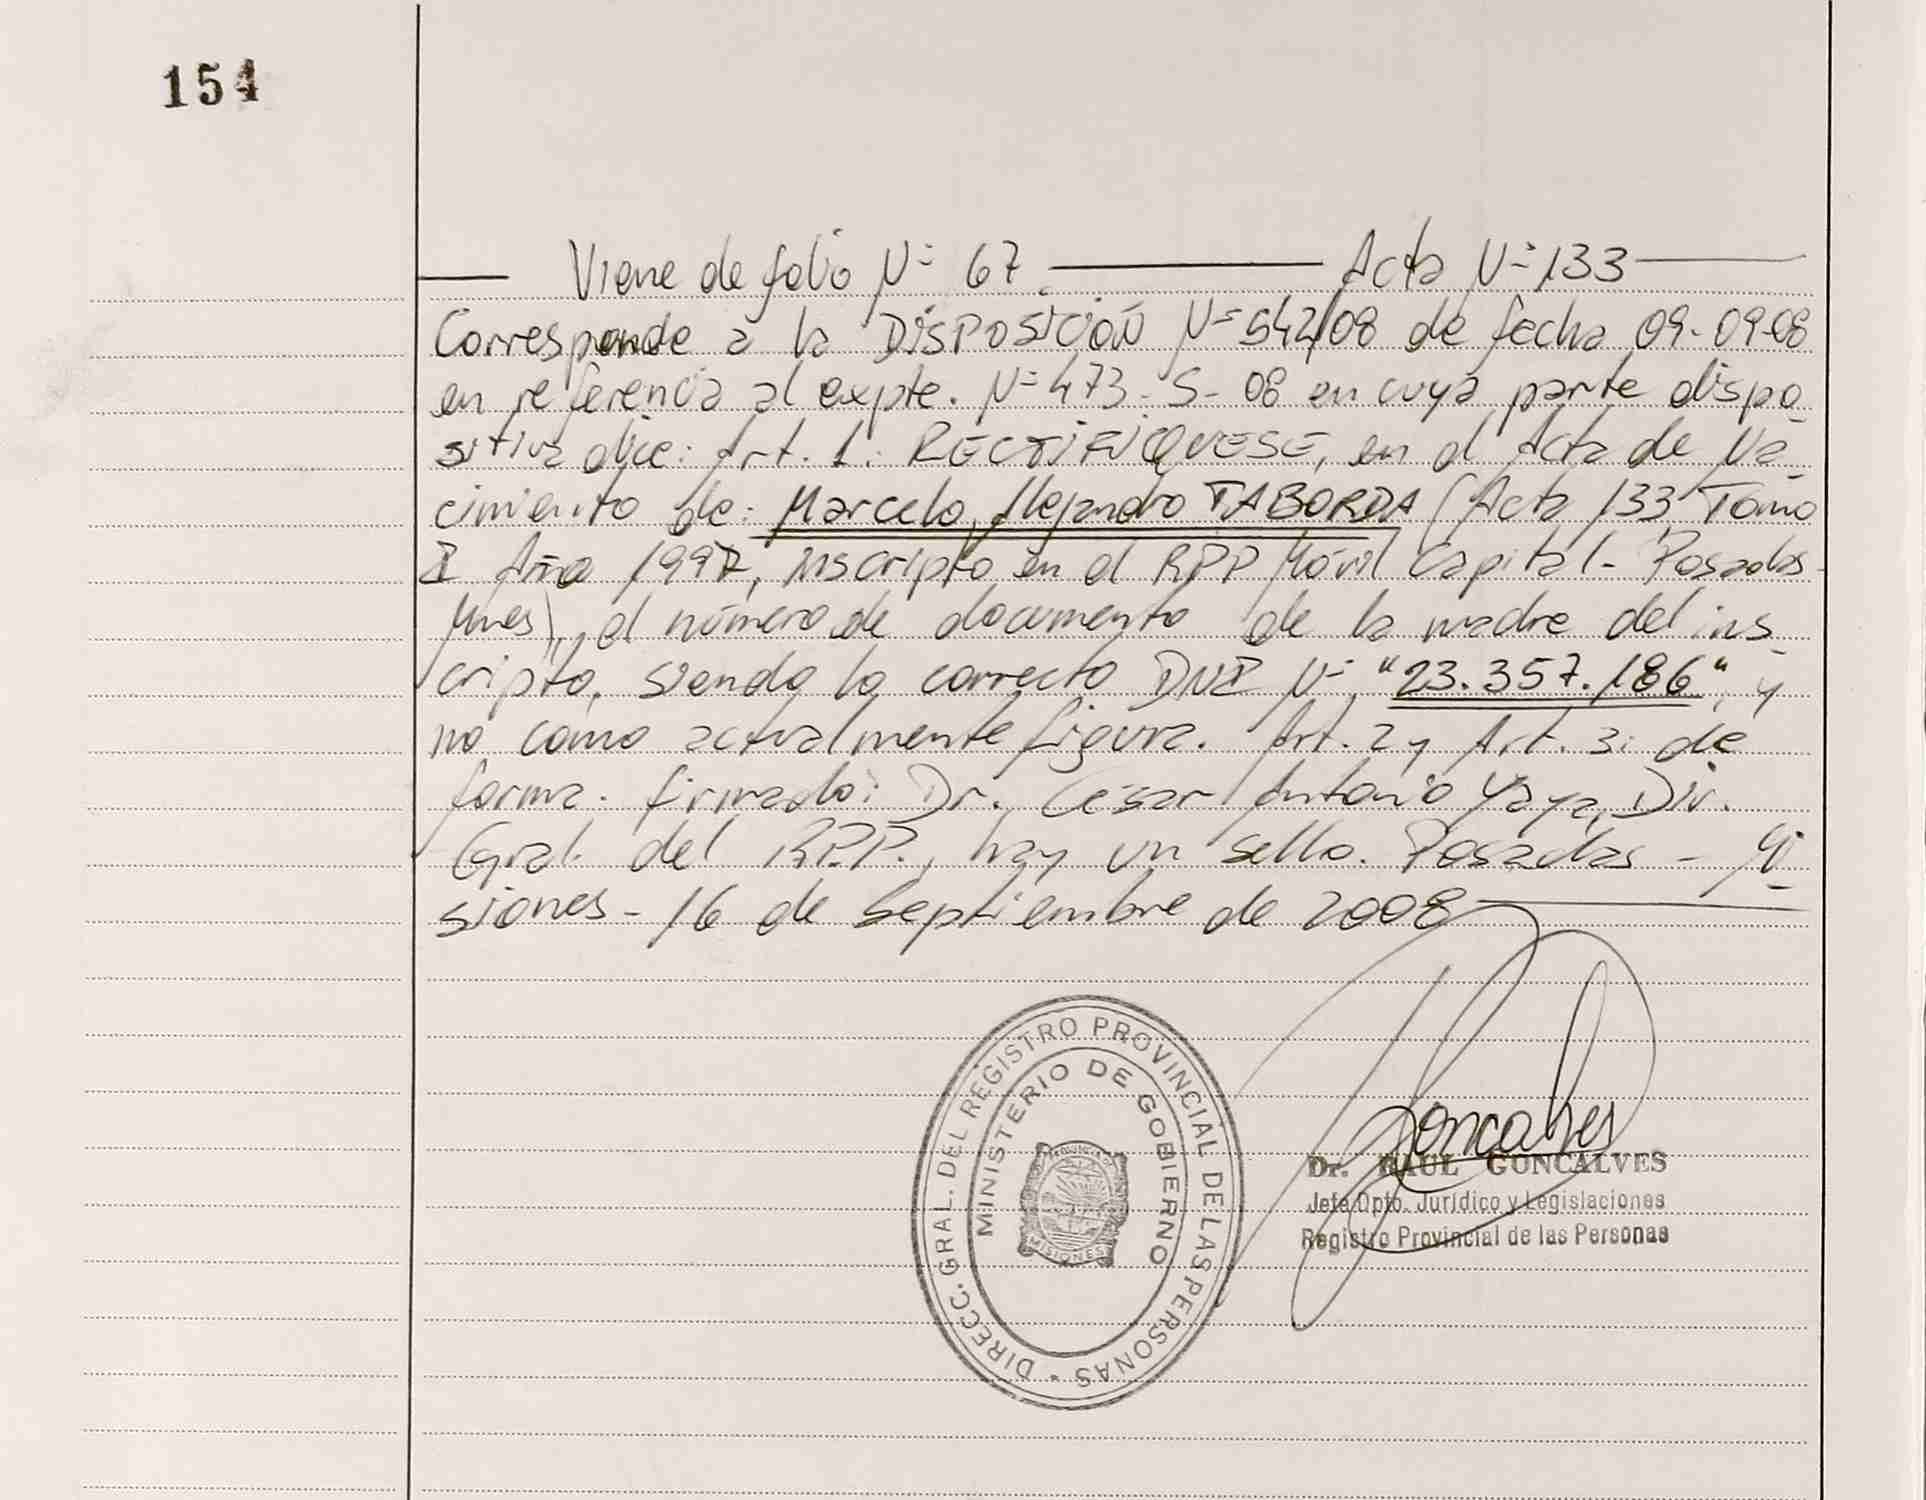 154
Viene de folio Nº 67. Acta Nº 133
Corresponde a la DISPOSICIÓN Nº 542/08 de fecha 09-09-08
en referencia al expte. Nº 473-S-08 en cuya parte dispo
sitiva dice: Art. 1: RECTIFIQUESE, en el Acta de Na
cimiento de: Marcelo Alejandro TABORDA (Acta 133 Tomo
I Año 1997, inscripto en el RPP Móvil Capital- Posadas-
Mnes), el número de documento de la madre del ins
cripto, siendo lo correcto DNI Nº "23.357.186", y
no como actualmente figura. Art. 2 y Art. 3: de
forma. firmado: Dr. César Antonio Yaya, Dir.
Gral. del R.P.P., hay un sello. Posadas - Mi
siones - 16 de Septiembre de 2008
DIRECC. GRAL. DEL REGISTRO PROVINCIAL DE LAS PERSONAS
MINISTERIO DE GOBIERNO
MISIONES
Goncalves
Dr. RAUL GONCALVES
Jefe Dpto. Jurídico y Legislaciones
Registro Provincial de las Personas